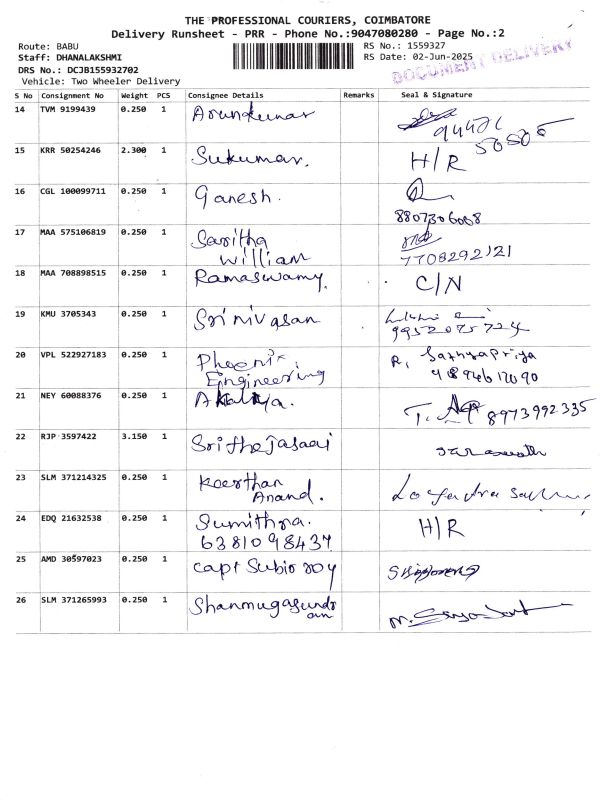 THE PROFESSIONAL COURIERS, COIMBATORE
Delivery Runsheet - PRR - Phone No.:9047080280 - Page No.:2
Route: BABU RS No.: 1559327
Staff: DHANALAKSHMI RS Date: 02-Jun-2025
DOCUMENT DELIVERY
DRS No.: DCJB155932702
Vehicle: Two Wheeler Delivery
S No Consignment No Weight PCS Consignee Details Remarks Seal & Signature
14 TVM 9199439 0.250 1 Arunkumar
15 KRR 50254246 2.300 1 Sukumar. H/R
16 CGL 100099711 0.250 1 Ganesh.
8807306088
17 MAA 575106819 0.250 1 Saritha
William 7708292121
18 MAA 708898515 0.250 1 Ramaswamy. C/N
19 KMU 3705343 0.250 1 Srinivasan
9952075724
20 VPL 522927183 0.250 1 Phoenix R. Sathyapriya
Engineering
21 NEY 60088376 0.250 1 Akalya. 8973992335
22 RJP 3597422 3.150 1
23 SLM 371214325 0.250 1 Keerthan
Anand.
24 EDQ 21632538 0.250 1 Sumithra. H/R
6381098437
25 AMD 30597023 0.250 1 Capt Subir roy
26 SLM 371265993 0.250 1 Shanmugasundr
am